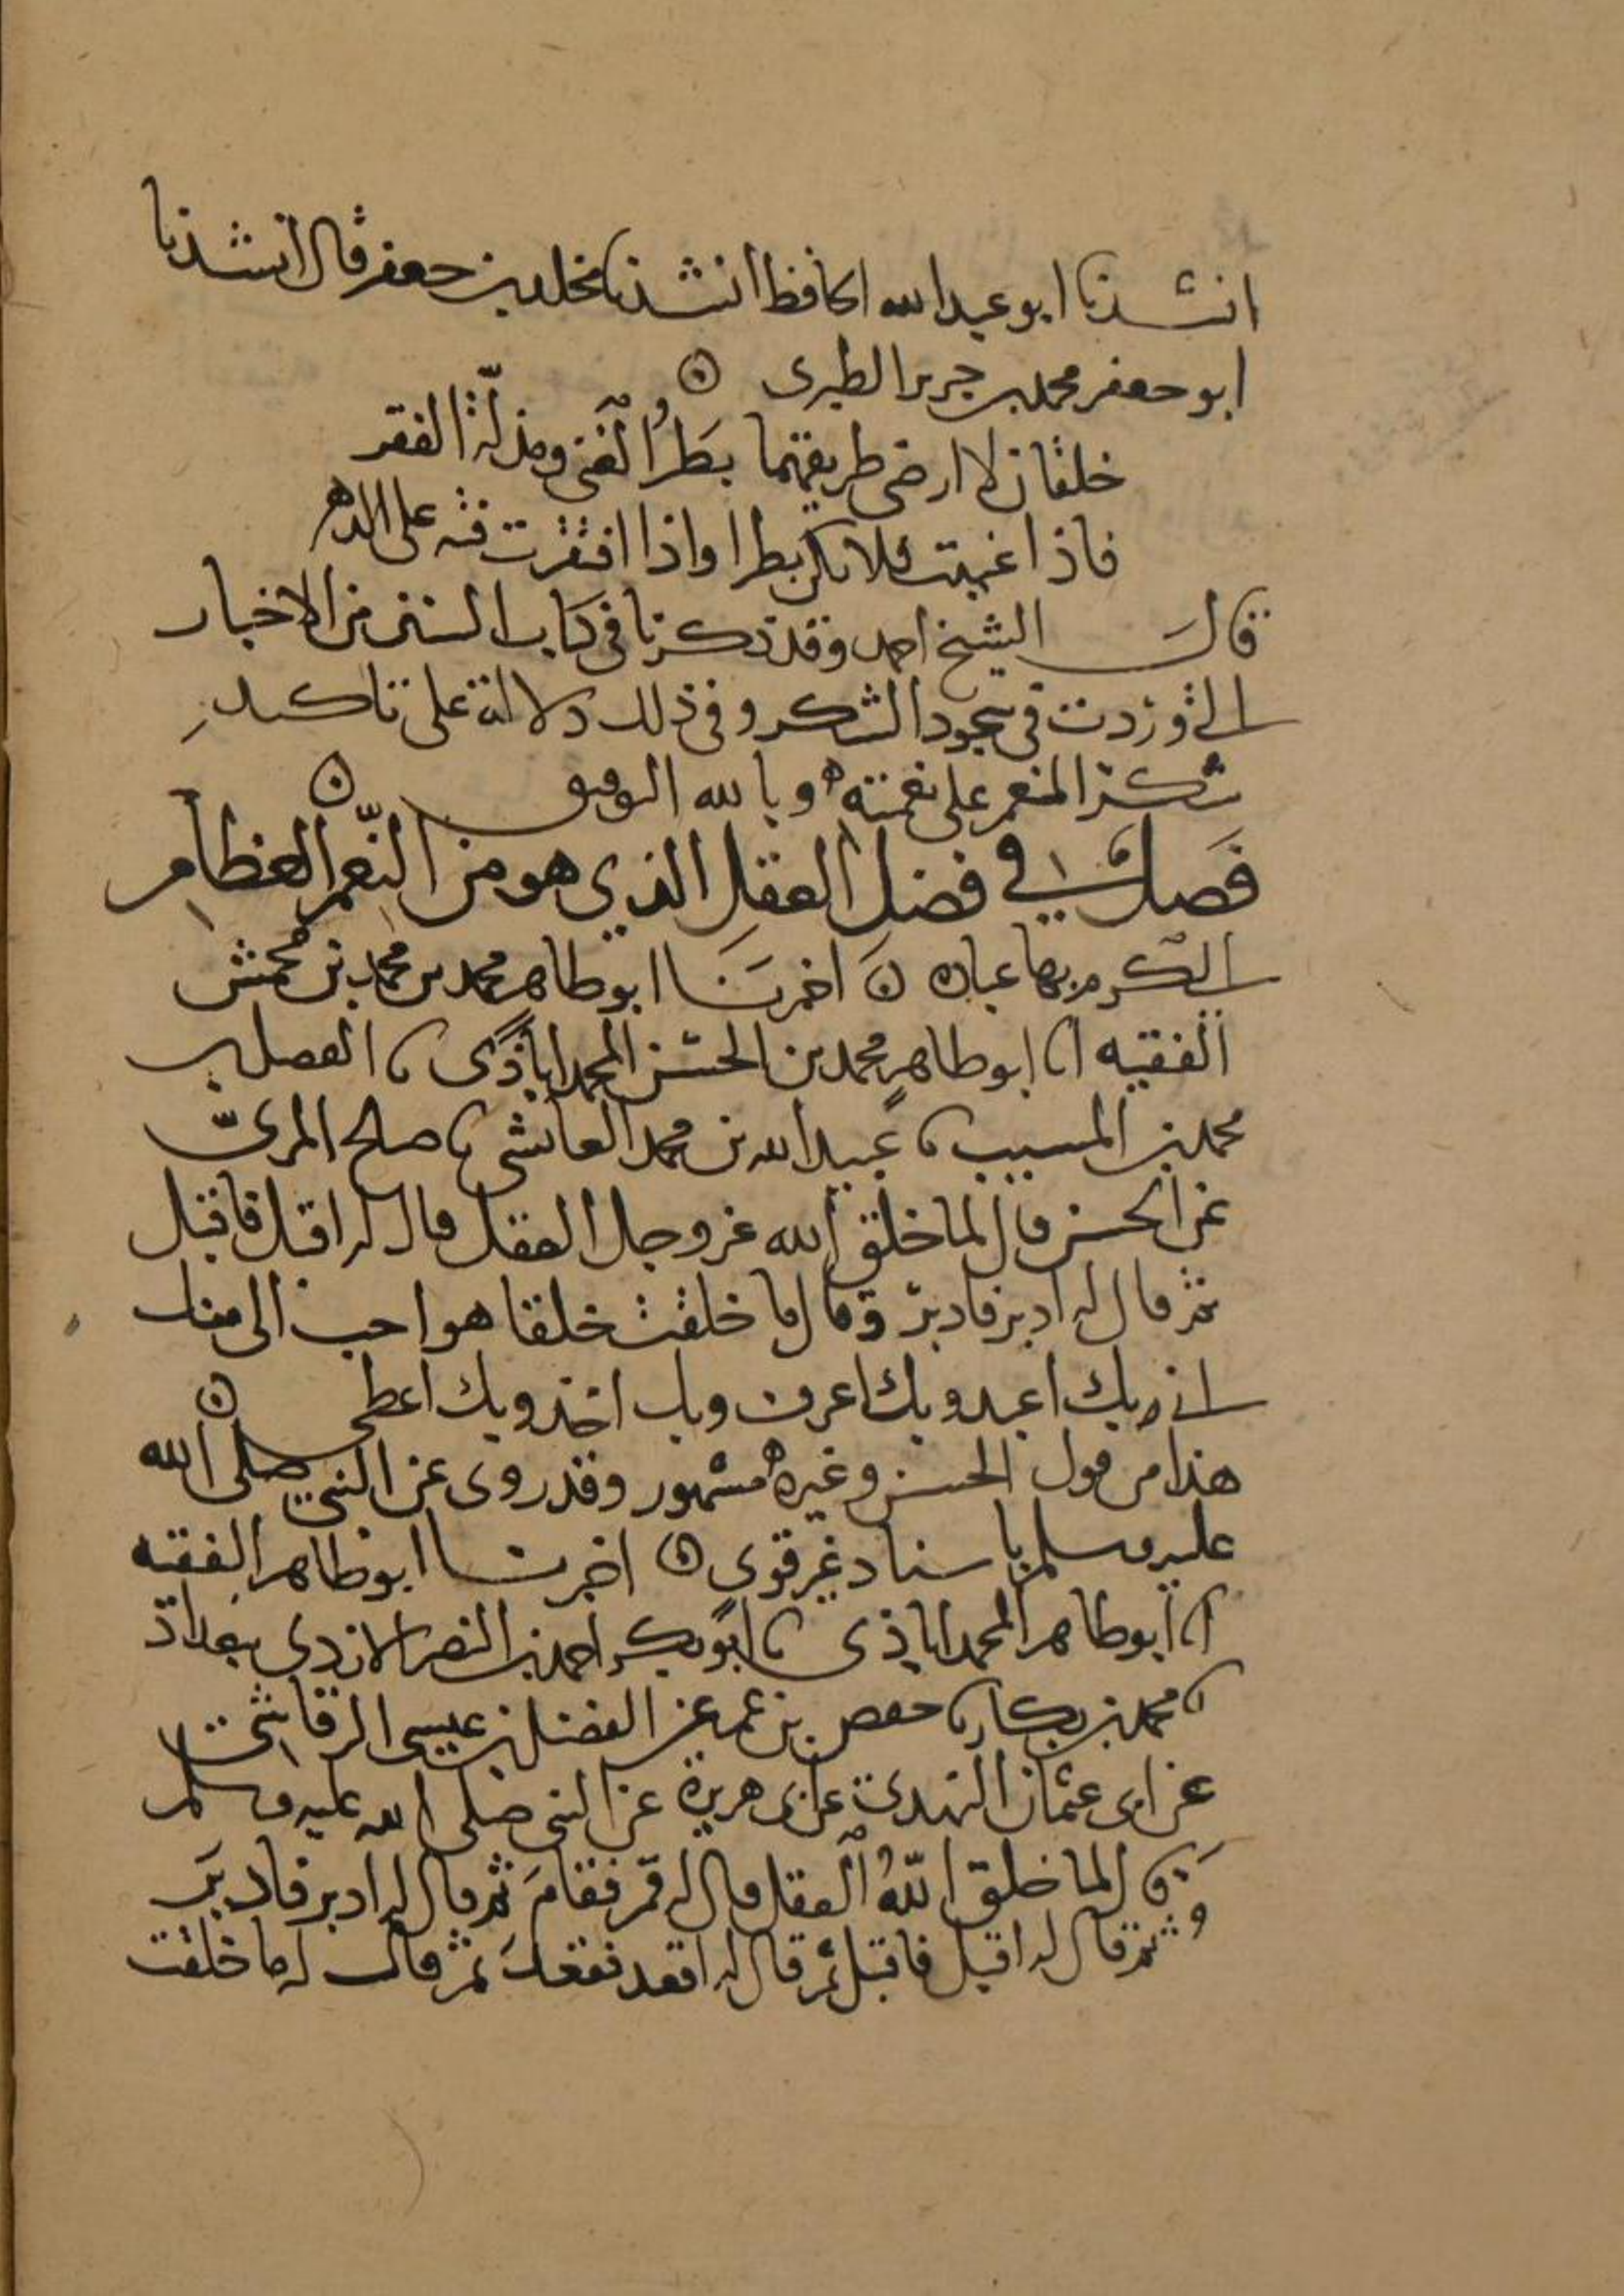 انشدنا ابو عبد الله الحافظ انشدنا مخلد بن جعفر قال انشدنا
ابو جعفر محمد بن جرير الطبري
خلقان لا ارضى طريقهما بَطَرُ الغنى ومذلّة الفقر
فاذا غنيت فلا تكن بطرا واذا افتقرت فته على الدهر
قال الشيخ احمد وقد ذكرنا في كتاب السنن من الاخبار
التي وردت في سجود الشكر وفي ذلك دلالة على تاكيد
شكر المنعم على نعمته وبالله التوفيق
فصل في فضل العقل الذي هو من النِّعم العظام
التي كرم بها عباده اخبرنا ابو طاهر محمد بن محمد بن محمش
الفقيه انا ابو طاهر محمد بن الحسن المحمداباذي نا الفضل بن
محمد بن المسيب نا عبيد الله بن محمد العائشي نا صالح المريّ
عن الحسن قال لما خلق الله عز وجل العقل قال له اقبل فاقبل
ثم قال له ادبر فادبر وقال ما خلقت خلقا هو احب الي منك
اني بك اعبد وبك اعرف وبك اخذ وبك اعطي
هذا من قول الحسن وغيره مشهور وقد روى عن النبي صلى الله
عليه وسلم باسناد غير قوي اخبرنا ابو طاهر الفقيه
انا ابو طاهر المحمداباذي نا ابو بكر احمد بن النضر الازدي ببغداذ
نا محمد بن بكار نا حفص بن عمر عن الفضل بن عيسى الرقاشي
عن ابي عثمان النهدي عن ابي هريرة عن النبي صلى الله عليه وسلم
قال لما خلق اللّٰهُ العقل قال له قم فقامَ ثم قال له ادبر فادبرَ
ثم قال له اقبل فاقبل ثم قال له اقعد فقعدَ ثم قال له ما خلقت